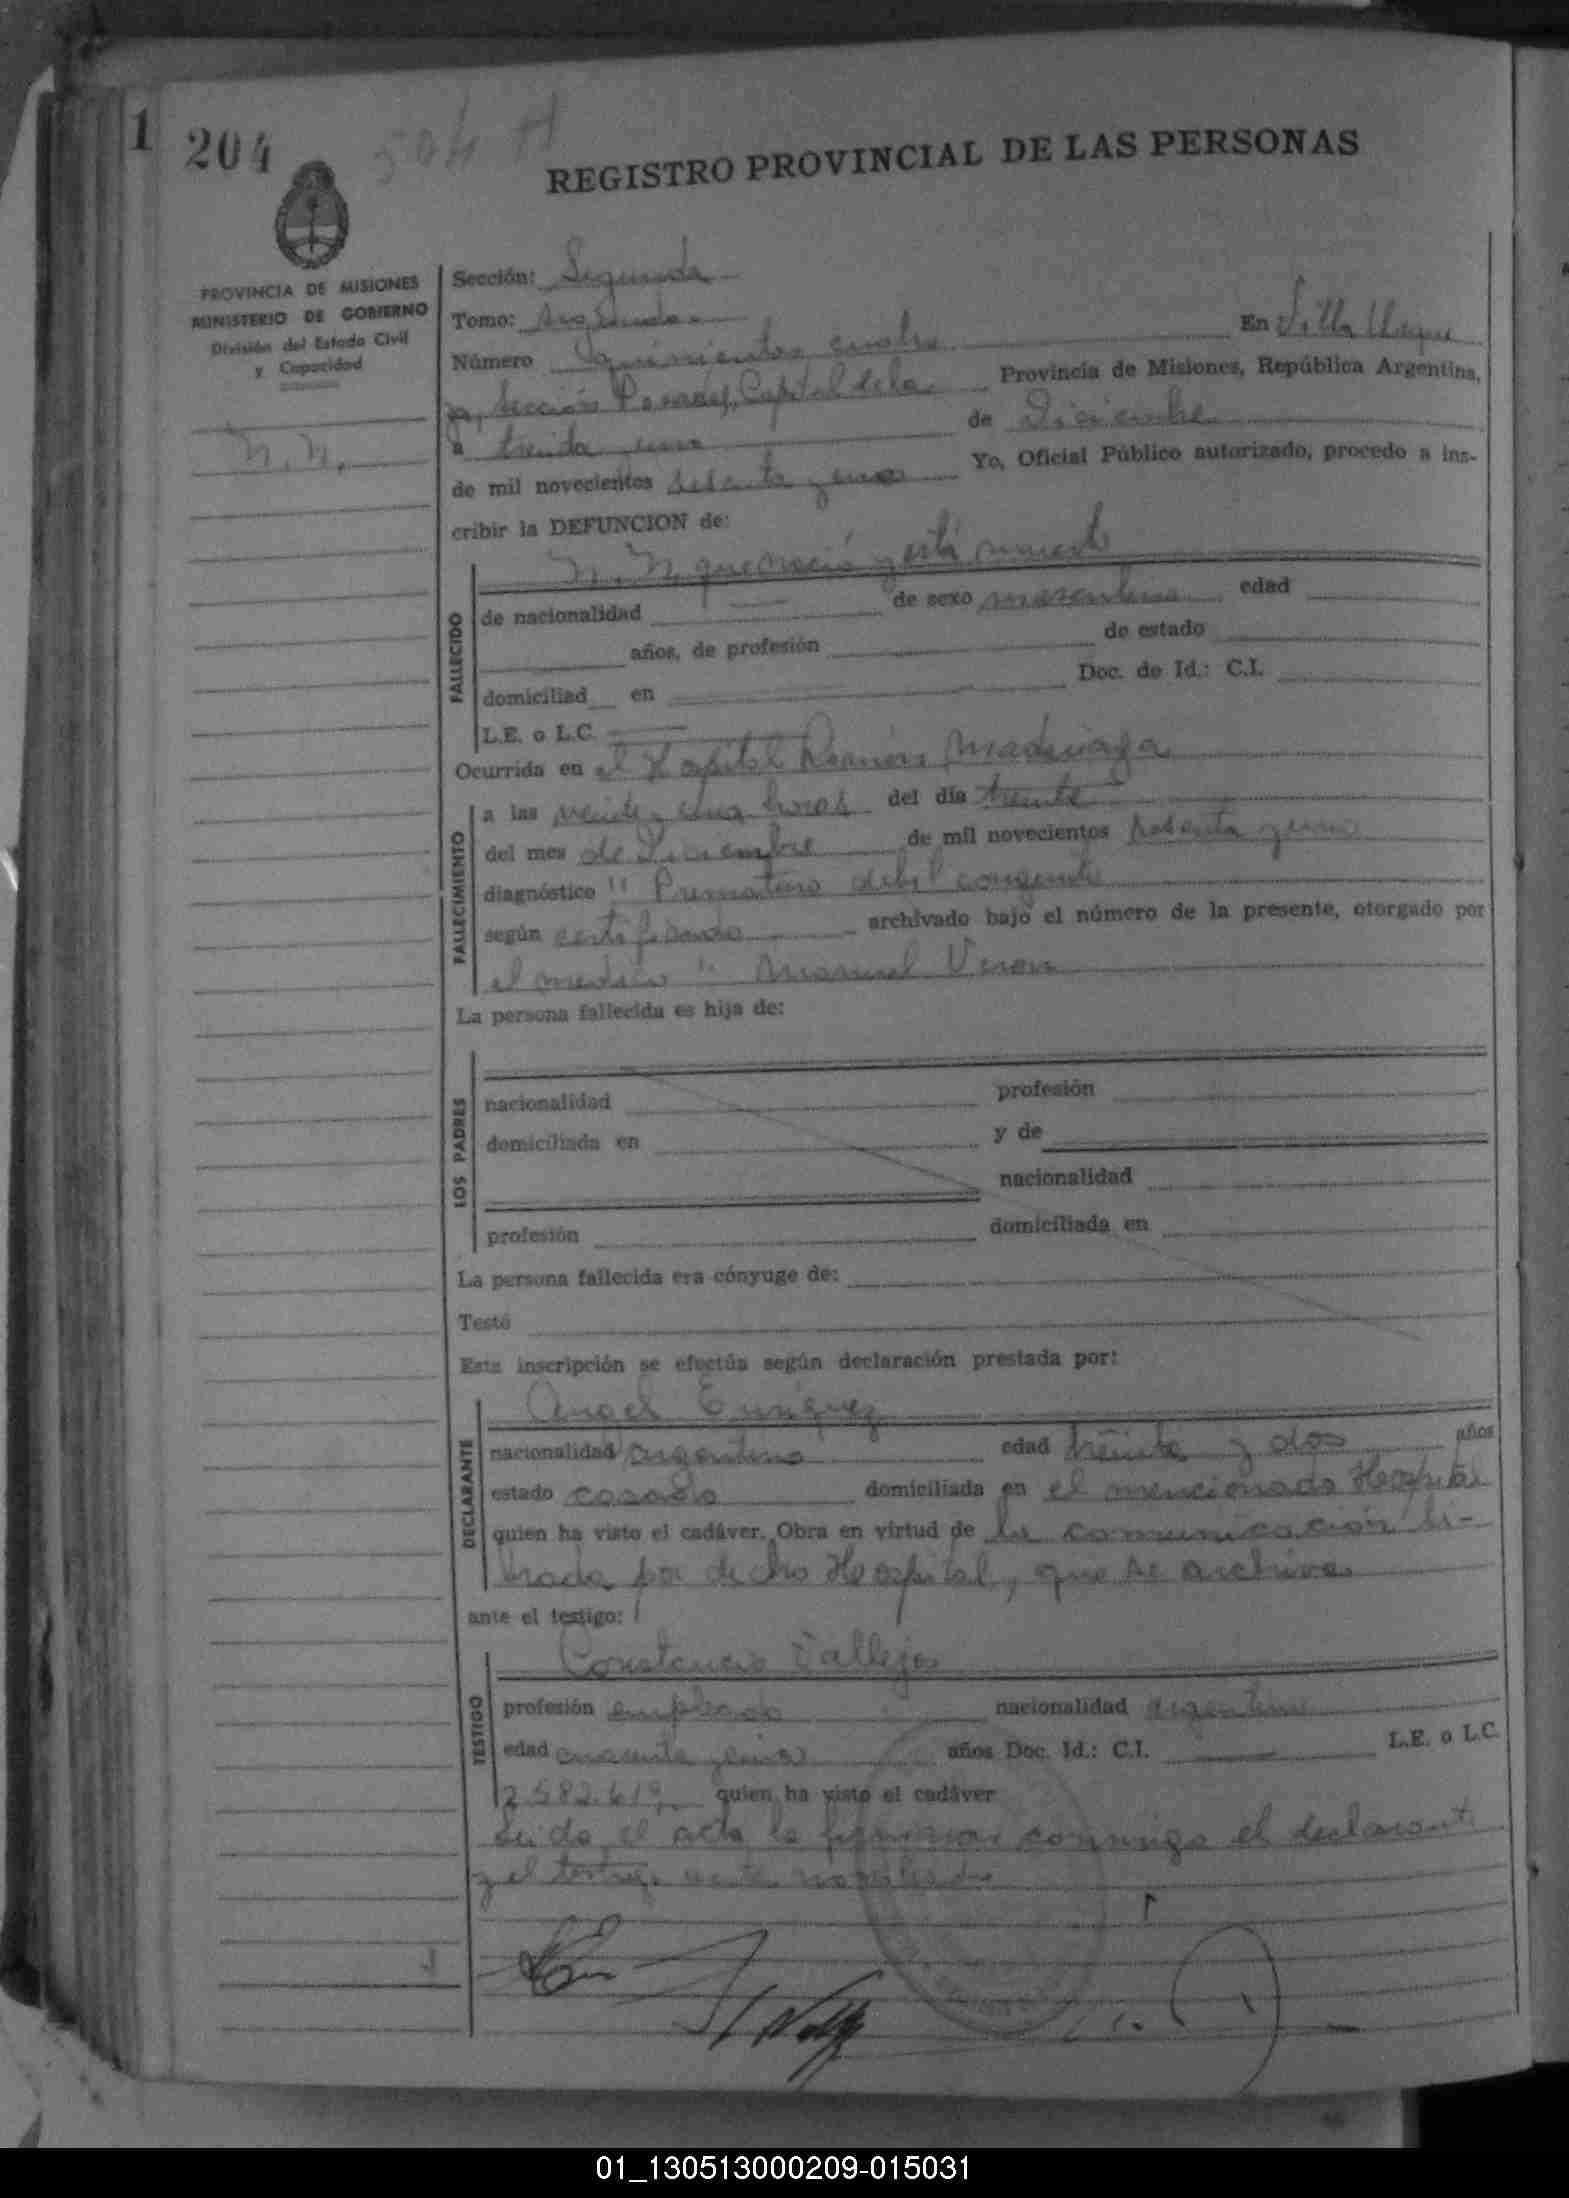 1 204 504 H
REGISTRO PROVINCIAL DE LAS PERSONAS
PROVINCIA DE MISIONES
MINISTERIO DE GOBIERNO
División del Estado Civil
y Capacidad
N. N.
Sección: Segunda
Tomo: Segundo
Número quinientos cuatro En Villa Urqui
za, Sección Posadas, Capital de la Provincia de Misiones, República Argentina,
a treinta uno de Diciembre
de mil novecientos sesenta y uno Yo, Oficial Público autorizado, procedo a ins-
cribir la DEFUNCION de:
FALLECIDO
N. N. que nació y está muerto
de nacionalidad de sexo masculino edad
años, de profesión de estado
domiciliad en Doc. de Id.: C.I.
L.E. o L.C.
Ocurrida en el Hospital Ramón Madariaga
FALLECIMIENTO
a las veinte una horas del día treinta
del mes de Diciembre de mil novecientos sesenta y uno
diagnóstico " Prematuro debil congenito
según certificado archivado bajo el número de la presente, otorgado por
el medico " Manuel Veron
La persona fallecida es hija de:
LOS PADRES
nacionalidad profesión
domiciliada en y de
nacionalidad
profesión domiciliada en
La persona fallecida era cónyuge de:
Testó
Esta inscripción se efectúa según declaración prestada por:
DECLARANTE
Angel Enriquez
nacionalidad argentino edad treinta y dos años
estado casado domiciliada en el mencionado Hospital
quien ha visto el cadáver. Obra en virtud de la comunicación li-
brada por dicho Hospital, que se archiva
ante el testigo:
TESTIGO
Constancio Vallejos
profesión empleado nacionalidad argentino
edad cuarenta y uno años Doc. Id.: C.I. L.E. o L.C.
2.582.619 quien ha visto el cadáver
Leida el acta la firmaron conmigo el declarante
y el testigo nombrado
01_130513000209-015031